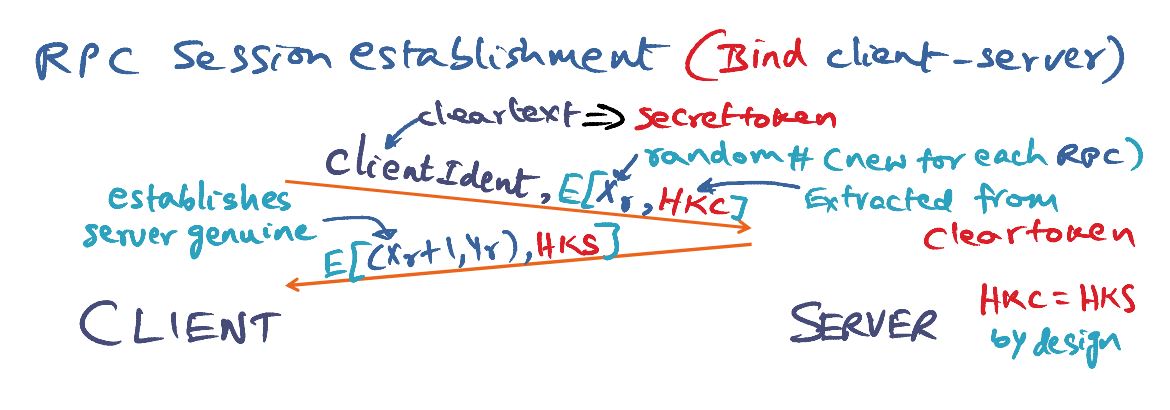 RPC Session establishment (Bind client-server)
cleartext => secrettoken
ClientIdent, E[Xr, HKC]
random # (new for each RPC)
Extracted from
cleartoken
establishes
server genuine
E[(Xr+1, Yr), HKS]
CLIENT
SERVER
HKC = HKS
by design